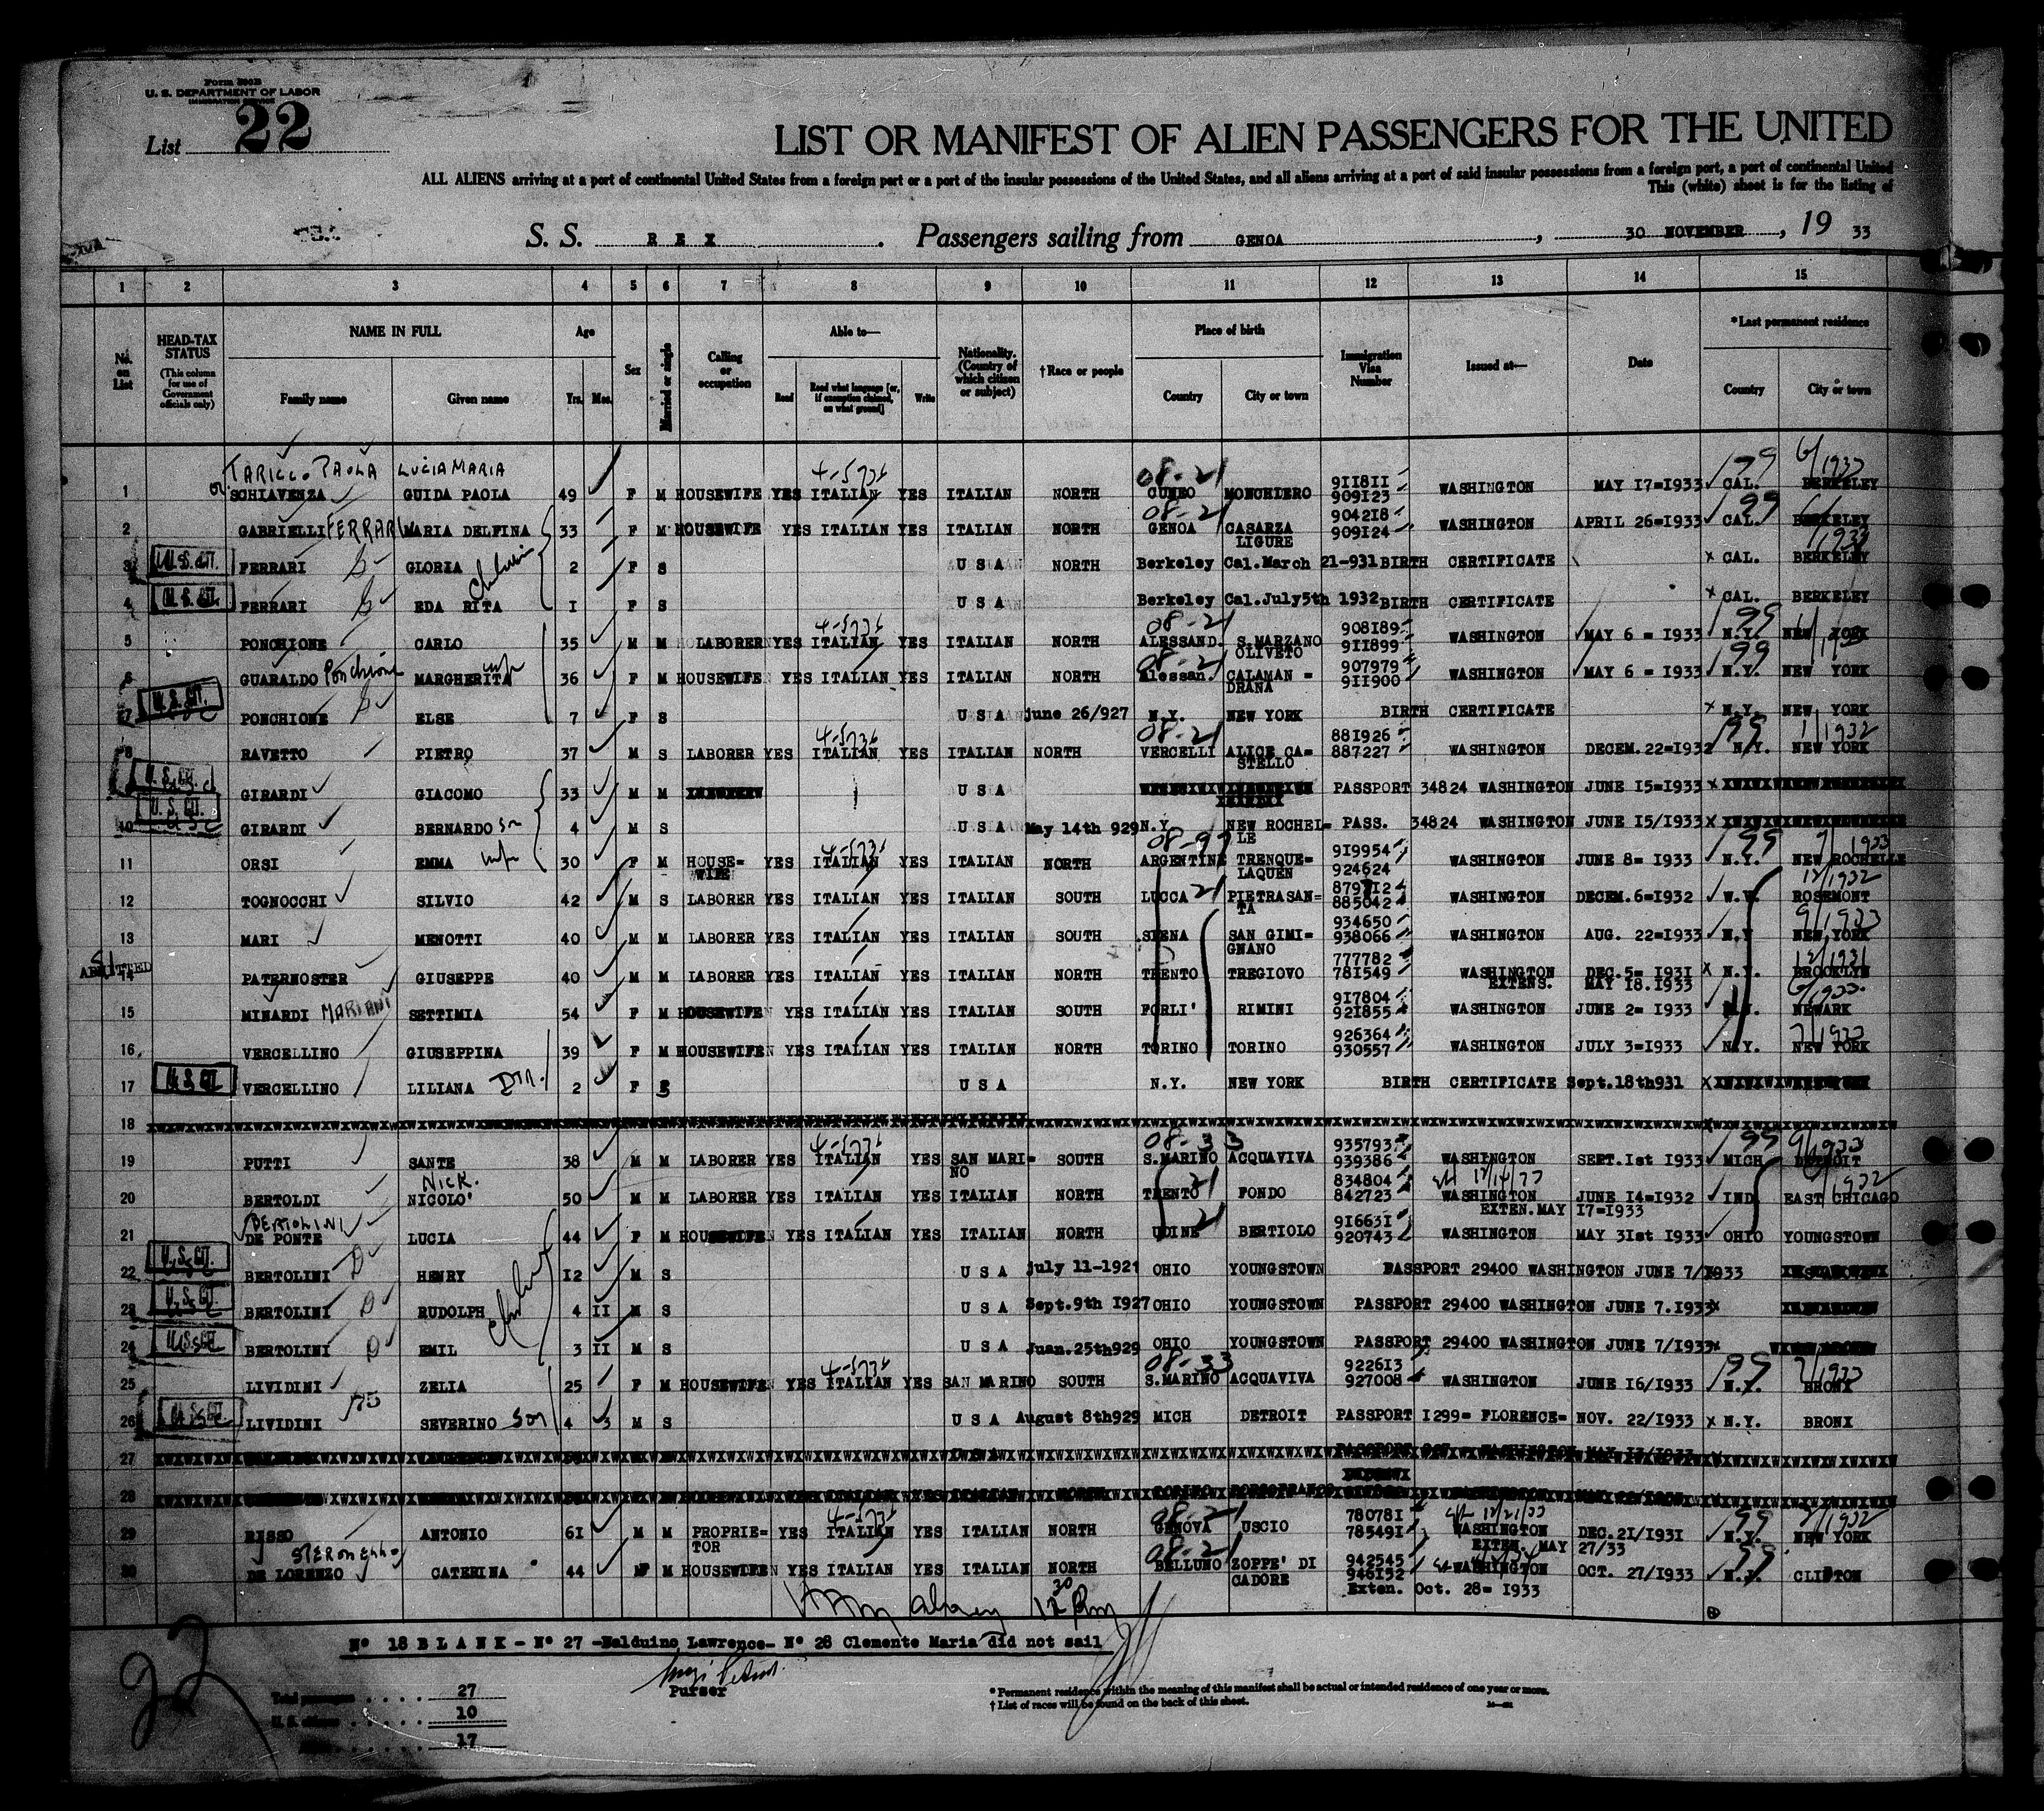 Form 500B
U. S. DEPARTMENT OF LABOR
IMMIGRATION SERVICE
List 22
LIST OR MANIFEST OF ALIEN PASSENGERS FOR THE UNITED
ALL ALIENS arriving at a port of continental United States from a foreign port or a port of the insular possessions of the United States, and all aliens arriving at a port of said insular possessions from a foreign port, a port of continental United
This (white) sheet is for the listing of
S. S. REX. Passengers sailing from GENOA, 30 NOVEMBER, 19 33
1 2 3 4 5 6 7 8 9 10 11 12 13 14 15
No. on List
HEAD-TAX STATUS (This column for use of Government officials only)
NAME IN FULL Family name Given name
Age Yrs. Mos.
Sex
Married or single
Calling or occupation
Able to— Read Read what language [or, if exemption claimed, on what ground] Write
Nationality. (Country of which citizen or subject)
†Race or people
Place of birth Country City or town
Immigration Visa Number
Issued at—
Date
*Last permanent residence Country City or town
TARICCO PAOLA LUCIA MARIA 4-5736 08-21 99 6/1933
1 or SCHIAVENZA GUIDA PAOLA 49 F M HOUSEWIFE YES ITALIAN YES ITALIAN NORTH CUNEO MONCHIERO 911811 909123 WASHINGTON MAY 17=1933 CAL. BERKELEY
2 GABRIELLI FERRARI MARIA DELFINA 33 F M HOUSEWIFE YES ITALIAN YES ITALIAN NORTH 08-21 GENOA CASARZA LIGURE 904218 909124 WASHINGTON APRIL 26=1933 99 CAL. BERKELEY
3 U.S.CIT. FERRARI GLORIA 2 F S U S A NORTH Berkeley Cal. March 21-931 BIRTH CERTIFICATE x CAL. BERKELEY
4 U.S.CIT. FERRARI EDA RITA children 1 F S U S A NORTH Berkeley Cal. July 5th 1932 BIRTH CERTIFICATE x CAL. BERKELEY
5 PONCHIONE CARLO 35 M M LABORER YES ITALIAN YES ITALIAN NORTH 08-21 ALESSAND. S. MARZANO OLIVETO 908189 911899 WASHINGTON MAY 6 = 1933 99 N.Y. NEW YORK
6 GUARALDO Ponchione MARGHERITA wife 36 F M HOUSEWIFE YES ITALIAN YES ITALIAN NORTH 08-21 Alessan. CALAMAN = DRANA 907979 911900 WASHINGTON MAY 6 = 1933 99 N.Y. NEW YORK
7 U.S.CIT. PONCHIONE ELSE 7 F S U S A june 26/927 N.Y. NEW YORK BIRTH CERTIFICATE x N.Y. NEW YORK
8 RAVETTO PIETRO 37 M S LABORER YES 4-5736 ITALIAN YES ITALIAN NORTH 08-21 VERCELLI ALICE CA= STELLO 881926 887227 WASHINGTON DECEM. 22=1932 99 N.Y. 1/1932 NEW YORK
9 U.S.CIT. GIRARDI GIACOMO 33 M M U S A PASSPORT 34824 WASHINGTON JUNE 15=1933 x
10 U.S.CIT. GIRARDI BERNARDO Sn 4 M S U S A May 14th 929 N.Y. NEW ROCHEL= LE PASS. 34824 WASHINGTON JUNE 15/1933 x
11 ORSI EMMA wife 30 F M HOUSE= WIFE YES 4-5736 ITALIAN YES ITALIAN NORTH 08-97 ARGENTINE TRENQUE= LAQUEN 919954 924624 WASHINGTON JUNE 8= 1933 99 N.Y. 7/1933 NEW ROCHELLE
12 TOGNOCCHI SILVIO 42 M S LABORER YES ITALIAN YES ITALIAN SOUTH LUCCA 21 PIETRASAN= TA 879712 885042 WASHINGTON DECEM. 6=1932 W.V. 12/1932 ROSEMONT
13 MARI MENOTTI 40 M M LABORER YES ITALIAN YES ITALIAN SOUTH SIENA SAN GIMI= GNANO 934650 938066 WASHINGTON AUG. 22=1933 N.Y. 9/1933 NEW YORK
ADMITTED 14 PATERNOSTER GIUSEPPE 40 M M LABORER YES ITALIAN YES ITALIAN NORTH TRENTO TREGIOVO 777782 781549 WASHINGTON EXTENS. DEC. 5= 1931 MAY 18.1933 x N.Y. 12/1931 BROOKLYN
15 MINARDI MARIANI SETTIMIA 54 F M HOUSEWIFE YES ITALIAN YES ITALIAN SOUTH FORLI' RIMINI 917804 921855 WASHINGTON JUNE 2= 1933 6/1933 NEWARK
16 VERCELLINO GIUSEPPINA 39 F M HOUSEWIFE YES ITALIAN YES ITALIAN NORTH TORINO TORINO 926364 930557 WASHINGTON JULY 3=1933 N.Y. 7/1933 NEW YORK
17 U.S.CIT. VERCELLINO LILIANA DTR. 2 F S U S A N.Y. NEW YORK BIRTH CERTIFICATE Sept. 18th 931 x
18
19 PUTTI SANTE 38 M M LABORER YES 4-5736 ITALIAN YES SAN MARI= NO SOUTH 08-33 S. MARINO ACQUAVIVA 935793 939386 WASHINGTON SEPT. 1st 1933 99 MICH 9/1933 DETROIT
20 BERTOLDI NICK. NICOLO' 50 M M LABORER YES ITALIAN YES ITALIAN NORTH TRENTO 21 FONDO 834804 842723 WASHINGTON EXTEN. MAY 17=1933 JUNE 14=1932 IND 6/1932 EAST CHICAGO
21 BERTOLINI DE PONTE LUCIA 44 F M HOUSEWIFE YES ITALIAN YES ITALIAN NORTH UDINE 21 BERTIOLO 916631 920743 WASHINGTON MAY 31st 1933 OHIO YOUNGSTOWN
22 U.S.CIT. BERTOLINI HENRY 12 M S U S A july 11-1921 OHIO YOUNGSTOWN PASSPORT 29400 WASHINGTON JUNE 7/1933
23 U.S.CIT. BERTOLINI RUDOLPH children 4 11 M S U S A Sept. 9th 1927 OHIO YOUNGSTOWN PASSPORT 29400 WASHINGTON JUNE 7.1933
24 U.S.CIT. BERTOLINI EMIL 3 11 M S U S A Juan. 25th 929 OHIO YOUNGSTOWN PASSPORT 29400 WASHINGTON JUNE 7/1933
25 LIVIDINI ZELIA 25 F M HOUSEWIFE YES 4-5736 ITALIAN YES SAN MARINO SOUTH 08-33 S. MARINO ACQUAVIVA 922613 927008 WASHINGTON JUNE 16/1933 99 N.Y. 7/1933 BRONX
26 U.S.CIT. LIVIDINI SEVERINO Son 4 3 M S U S A August 8th 929 MICH DETROIT PASSPORT 1299= FLORENCE= NOV. 22/1933 x N.Y. BRONX
27
28
29 RISSO ANTONIO 61 M M PROPRIE= TOR YES 4-5736 ITALIAN YES ITALIAN NORTH 08-21 GENOVA USCIO 780781 785491 12/21/33 WASHINGTON EXTEN. MAY 27/33 DEC. 21/1931 99 N.Y. 2/1932 NEW YORK
30 DE LORENZO CATERINA 44 F M HOUSEWIFE YES ITALIAN YES ITALIAN NORTH 08-21 BELLUNO ZOPPE' DI CADORE 942545 946152 WASHINGTON Exten. Oct. 28= 1933 OCT. 27/1933 99 N.J. CLIFTON
12 30 Pm
No 18 BLANK - No 27 -Balduino Lawrence- No 28 Clemente Maria did not sail
Purser
22
Total passengers 27
U. S. citizens 10
Aliens 17
* Permanent residence within the meaning of this manifest shall be actual or intended residence of one year or more.
† List of races will be found on the back of this sheet.